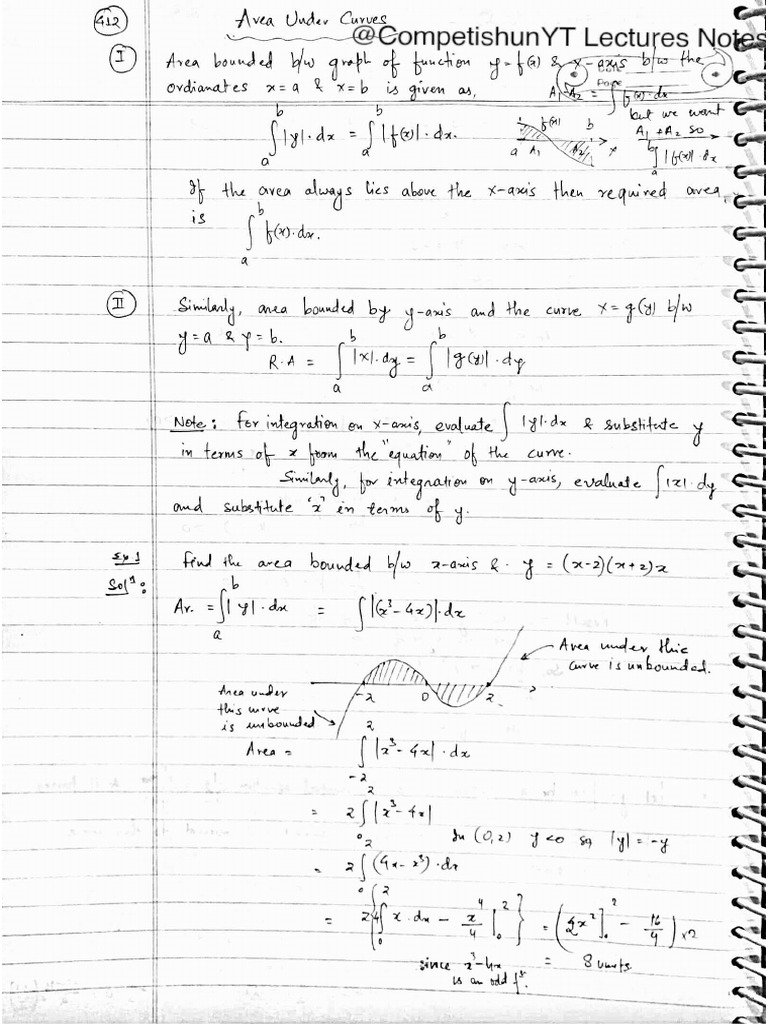 412
Area Under Curves
@CompetishunYT Lectures Notes
I
Area bounded b/w graph of function y=f(x) & x-axis b/w the
ordianates x=a & x=b is given as,
∫_a^b |y|·dx = ∫_a^b |f(x)|·dx.
A₁-A₂ = ∫f(x)·dx
but we want
A₁+A₂ so
∫_a^b |f(x)|·dx
f(x) b
a A₁ A₂ x
If the area always lies above the x-axis then required area
is
∫_a^b f(x)·dx.
II
Similarly, area bounded by y-axis and the curve x=g(y) b/w
y=a & y=b.
R.A = ∫_a^b |x|·dy = ∫_a^b |g(y)|·dy
Note: For integration on x-axis, evaluate ∫|y|·dx & substitute y
in terms of x from the "equation" of the curve.
Similarly, for integration on y-axis, evaluate ∫|x|·dy
and substitute 'x' in terms of y.
Ex.1 Find the area bounded b/w x-axis & y = (x-2)(x+2)x
Solⁿ:
Ar. = ∫_a^b |y|·dx = ∫|(x³-4x)|·dx
Area under this
curve is unbounded.
-2 0 2
Area under
this curve
is unbounded
Area = ∫_{-2}^2 |x³-4x|·dx
= 2∫_0^2 |x³-4x|
In (0,2) y<0 so |y| = -y
= 2∫_0^2 (4x-x³)·dx
= 2{4∫_0^2 x·dx - x⁴/4]_0^2} = (2x²]_0^2 - 16/4)×2
since x³-4x
is an odd fⁿ.
= 8 units